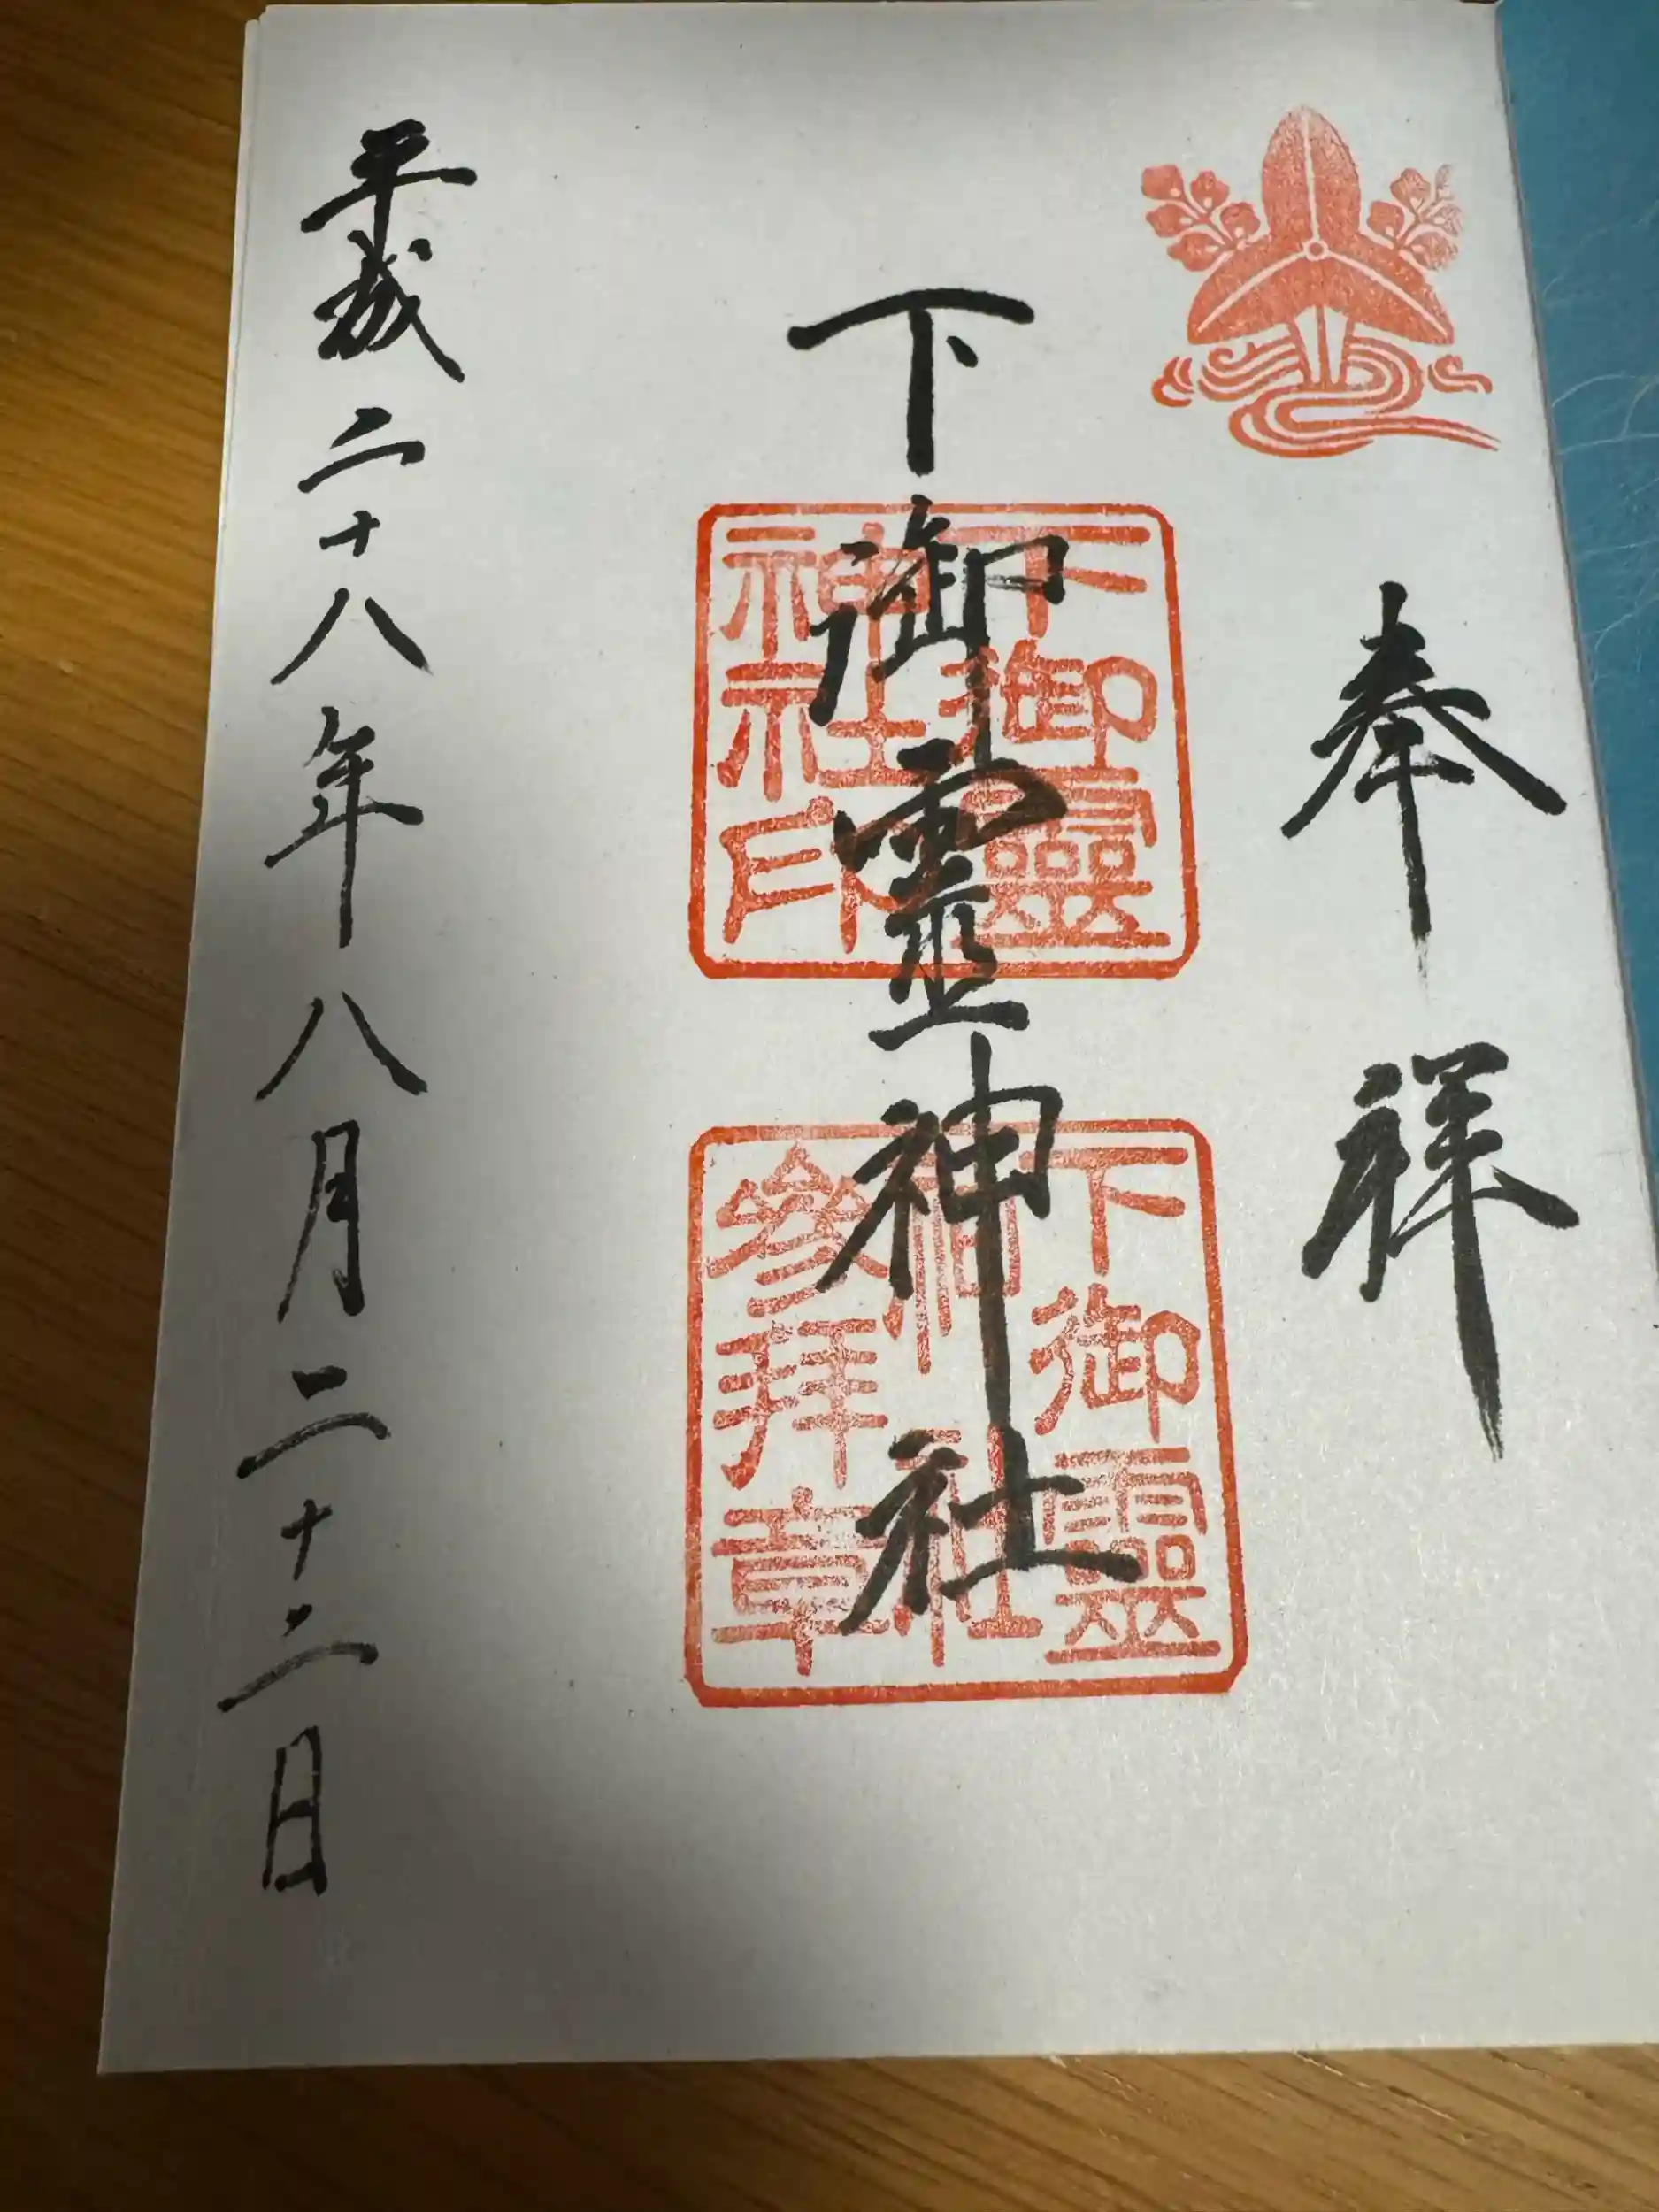 奉祥
下御霊神社
下御靈
神社印
下御靈
神社
參拜章
平成二十八年八月二十二日